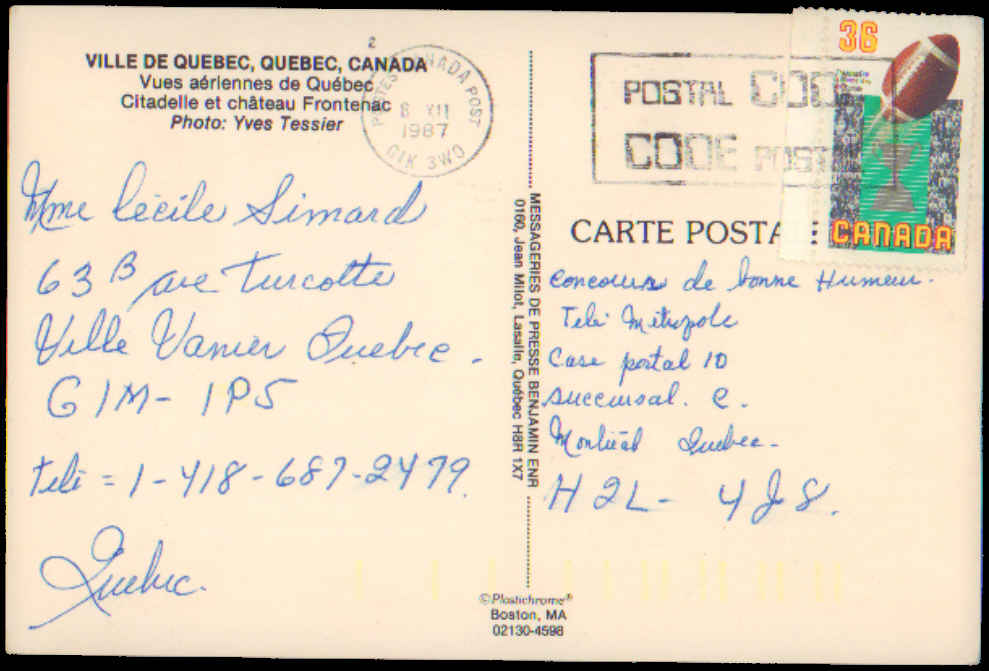 VILLE DE QUEBEC, QUEBEC, CANADA
Vues aériennes de Québec
Citadelle et château Frontenac
Photo: Yves Tessier
2
POSTES CANADA POST
8 XII
1987
G1K 3W0
POSTAL CODE
CODE POSTAL
36
CANADA
Mme Cécile Simard
63 B ave Turcotte
Ville Vanier Quebec.
G1M - 1P5
telé = 1-418-687-2479.
Quebec.
MESSAGERIES DE PRESSE BENJAMIN ENR
0160, Jean Milot, Lasalle, Québec H8R 1X7
CARTE POSTALE
concours de bonne Humeur.
Telé Métropole
Case portal 10
Succursal. C.
Montréal Quebec.
H2L - 4J8.
©Plastichrome®
Boston, MA
02130-4598